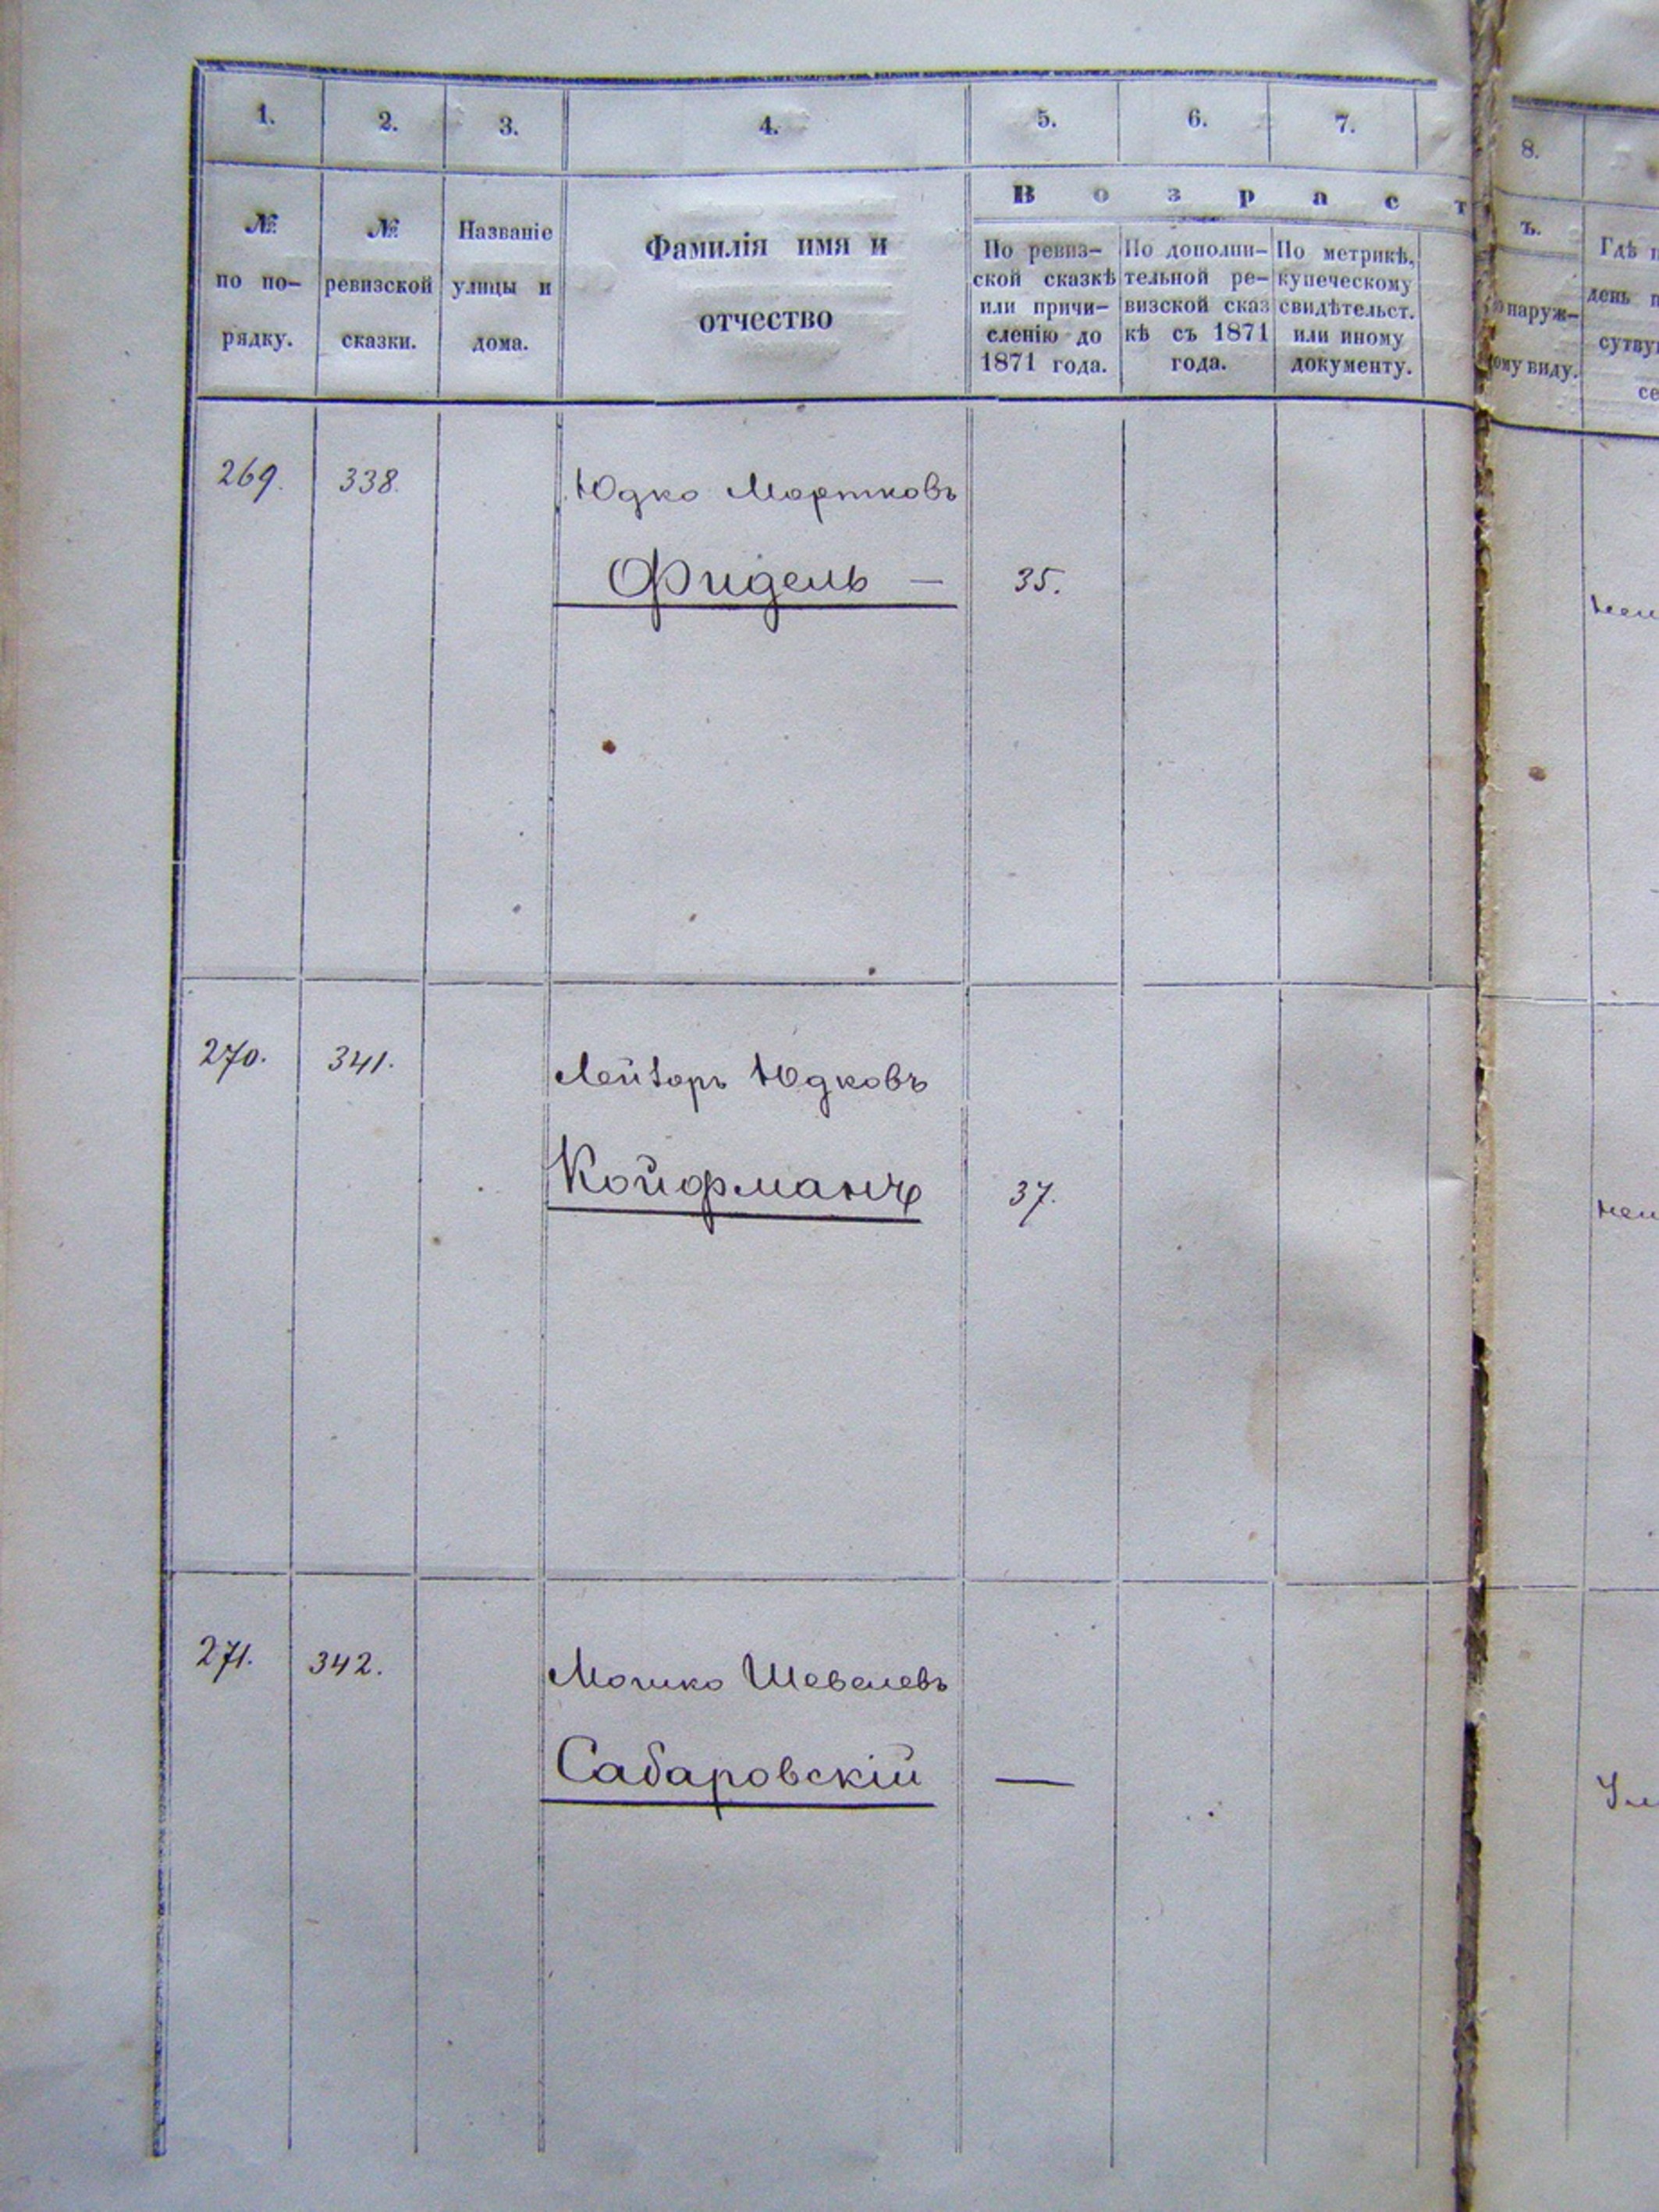 1. 2. 3. 4. 5. 6. 7. 8.
В о з р а с т ъ.
№ по по-
рядку.
№
ревизской
сказки.
Названіе
улицы и
дома.
Фамилія имя и
отчество
По ревиз-
ской сказкѣ
или причи-
сленію до
1871 года.
По дополни-
тельной ре-
визской сказ
кѣ съ 1871
года.
По метрикѣ,
купеческому
свидѣтельст.
или иному
документу.
наруж-
ому виду.
Гдѣ
день
269. 338. Юдко Мортковъ
Фидель — 35.
270. 341. Лейзоръ Юдковъ
Койфманъ 37.
271. 342. Мошко Шевелевъ
Сабаровскій —